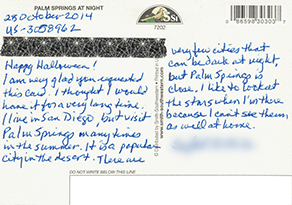 PALM SPRINGS AT NIGHT
28 October 2014
US-3058962
7202
Happy Halloween!
I am very glad you requested
this card. I thought I would
have it for a very long time.
I live in San Diego, but visit
Palm Springs many times
in the summer. It is a popular
city in the desert. There are
very few cities that
can be dark at night,
but Palm Springs is
close. I like to look at
the stars when I'm there
because I can't see them
as well at home.
DO NOT WRITE BELOW THIS LINE